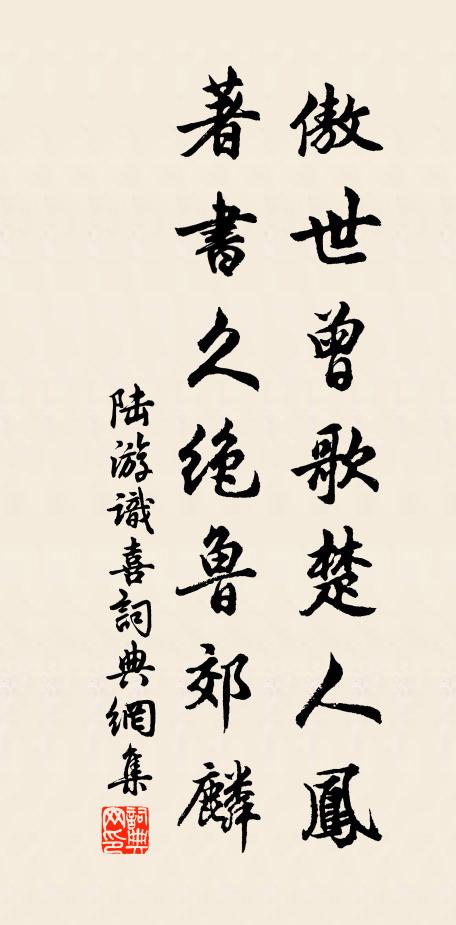 傲世曾歌楚人鳳
著書久絶魯郊麟
陆游識喜詞典網集
詞典网印